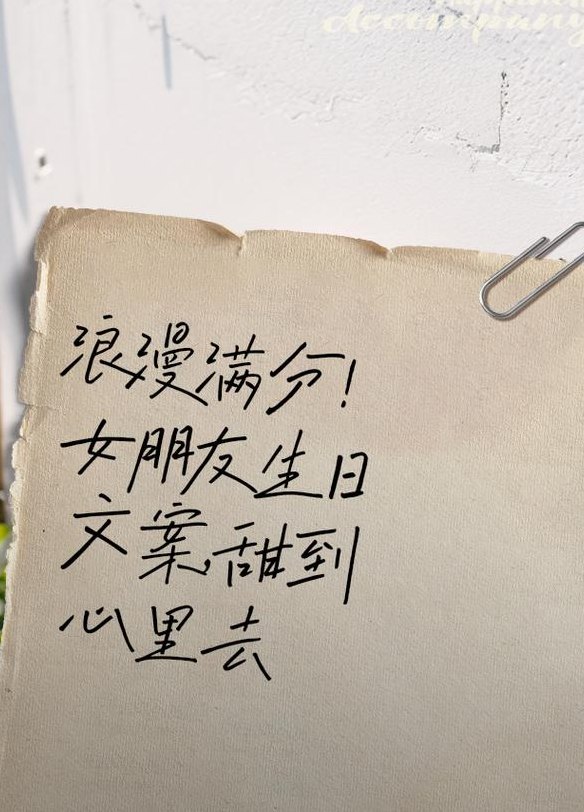 Accompany
浪漫满分!
女朋友生日
文案,甜到
心里去